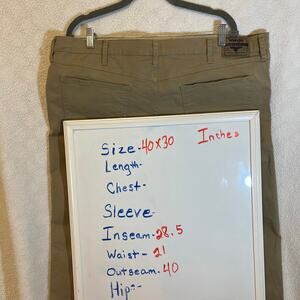 Size-40x30 Inches
Length-
Chest-
Sleeve
Inseam-28.5
Waist-21
Outseam-40
Hips-